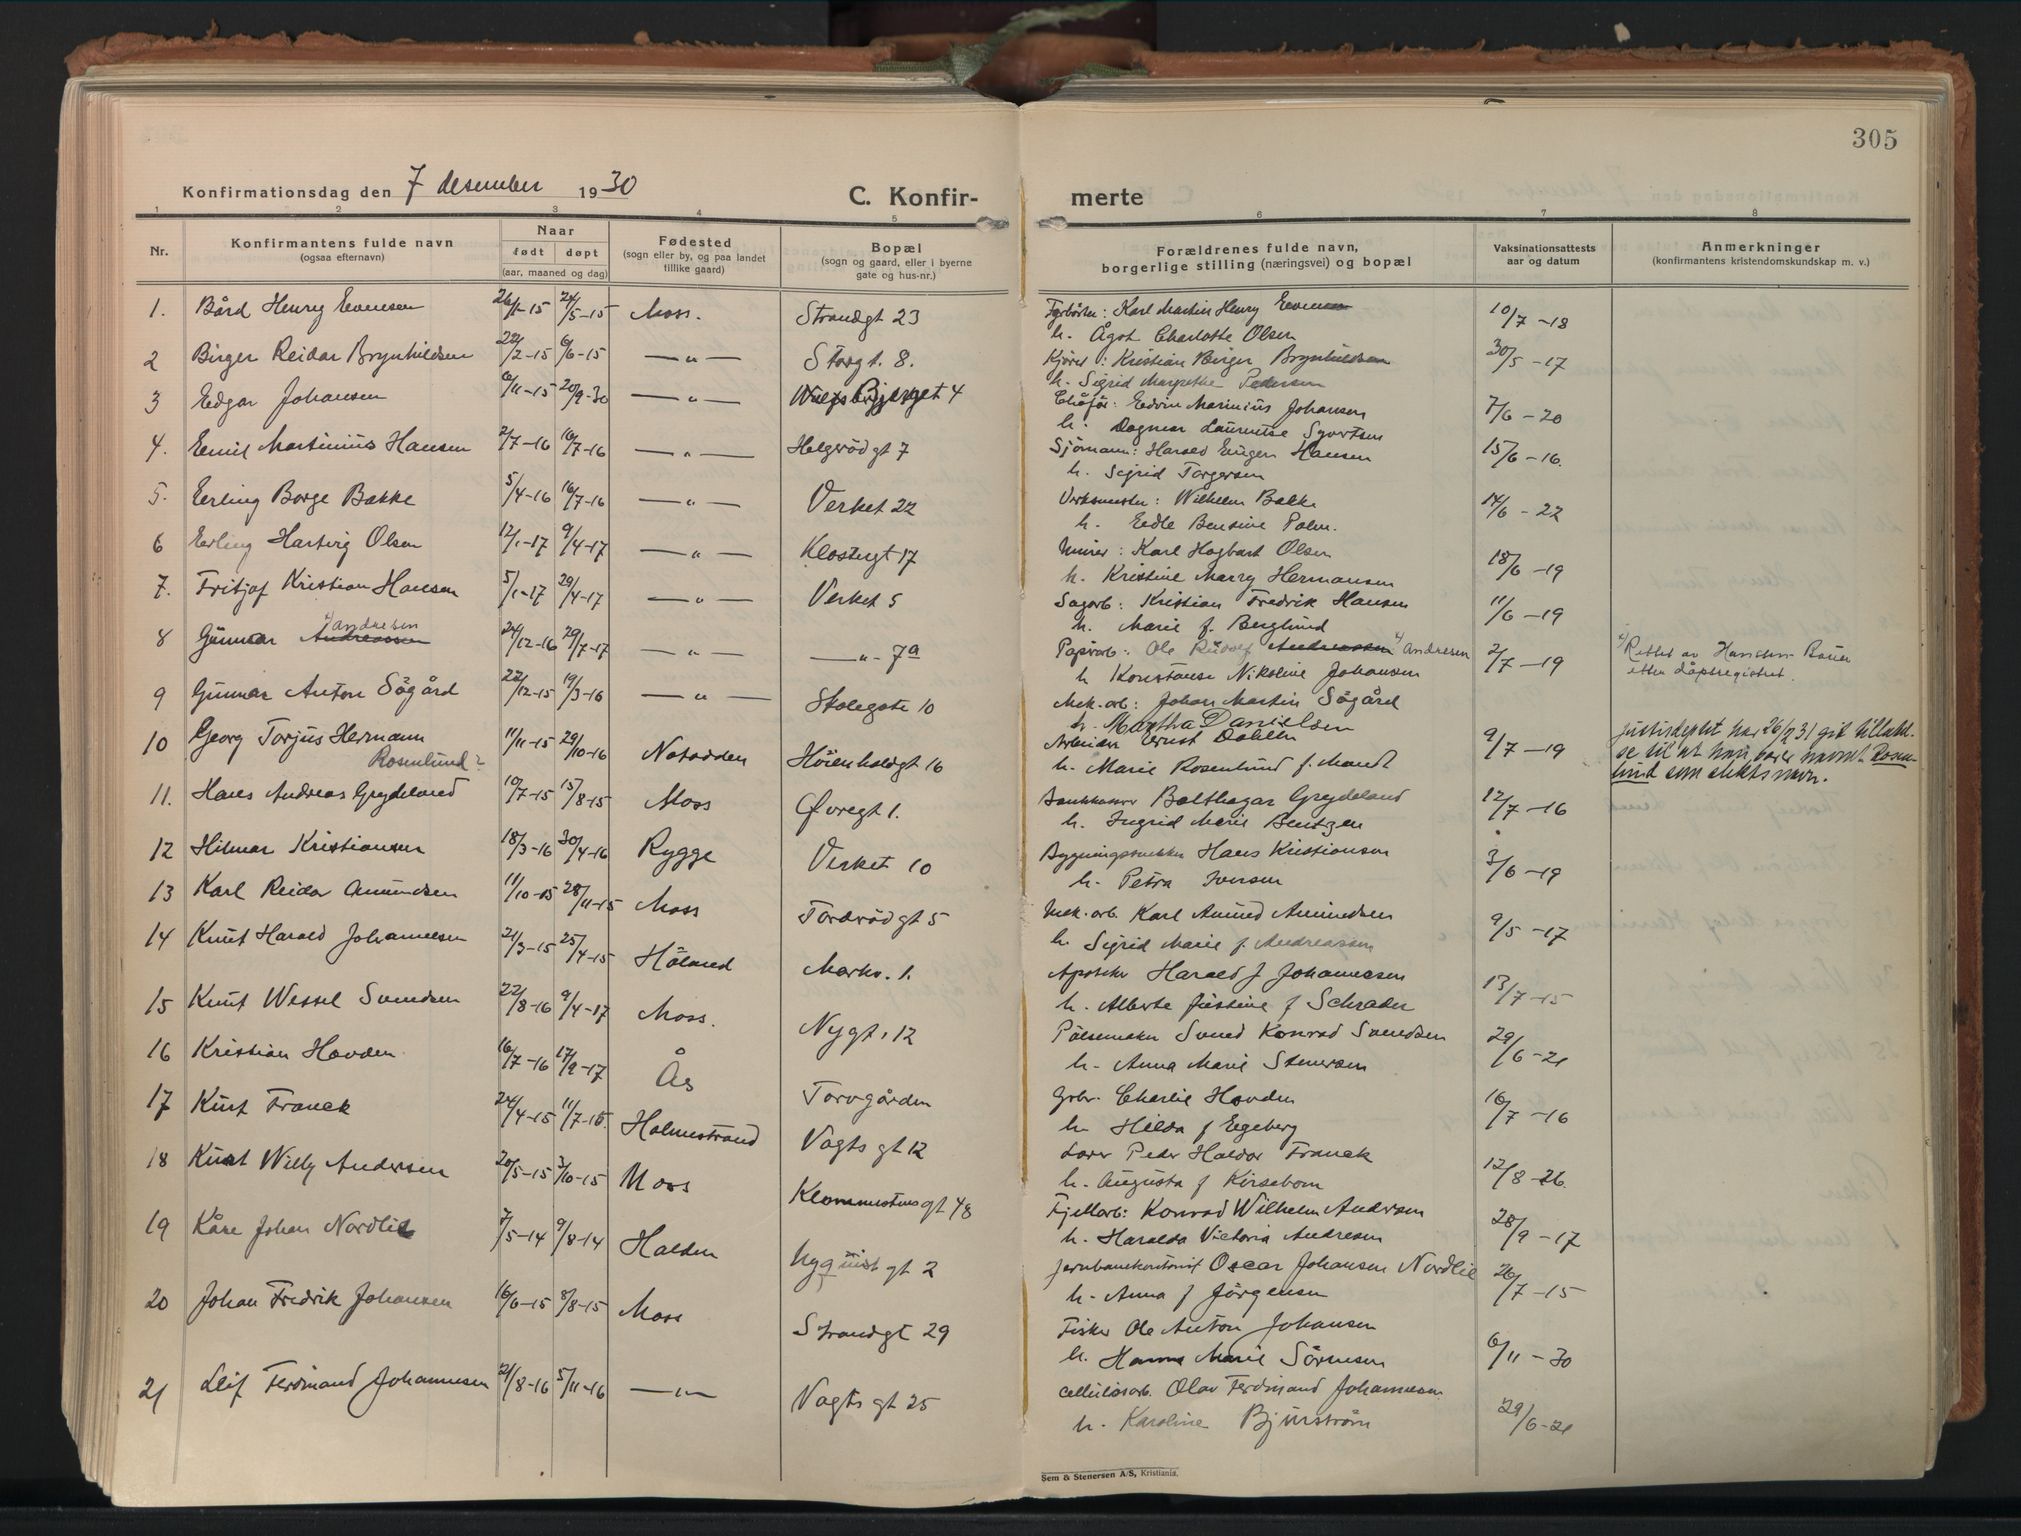 305
Konfirmationsdag den 7 desember 1930
C. Konfir-
merte
1 2 3 4 5 6 7 8
Nr.
Konfirmantens fulde navn
(ogsaa efternavn)
Naar
født døpt
(aar, maaned og dag)
Fødested
(sogn eller by, og paa landet
tillike gaard)
Bopæl
(sogn og gaard, eller i byerne
gate og hus-nr.)
Forældrenes fulde navn,
borgerlige stilling (næringsvei) og bopæl
Vaksinationsattests
aar og datum
Anmerkninger
(konfirmantens kristendomskundskap m. v.)
1. Bård Henry Evensen 26/1-15 24/5-15 Moss. Strandgt 23 Karl Martin Henry Evensen 10/7-18
h. Ågot Charlotte Olsen
2 Birger Reidar Brynhildsen 22/2-15 6/6-15 —„— Storgt. 8. Kjører: Kristian Birger Brynhildsen 30/5-17
h. Sigrid Margrethe Pedersen
3 Edgar Johansen 6/11-15 20/9-30 —„— 4 Chåfør: Edvin Marinius Johansen 7/6-20
h. Dagmar Lauentse Syvertsen
4. Emil Martinius Hansen 2/7-16 16/7-16 —„— Helgerödgt 7 Sjömann: Harald Eugen Hansen 15/6-16.
h. Sigrid Torgersen
5. Erling Borge Bakke 5/4-16 16/7-16 —„— Verket 22 Verksmester: Wilhelm Bakke 14/6-22
h. Edle Bensine Palm.
6 Erling Hartvig Olsen 12/1-17 9/4-17 —„— Klostergt 17 Murer: Karl Hagbart Olsen 18/6-19
h. Kristine Marry Hermansen
7. Fritjof Kristian Hansen 5/1-17 29/4-17 —„— Verket 5 Sagarb: Kristian Fredrik Hansen 11/6-19
h. Marie f. Berglund
8 Gunnar Andreassen *) Andresen 24/12-16 29/7-17 —„— —„— 7a Papirarb: Ole Rudolf Andreassen *) Andresen 2/7-19 *) Rettet av Hanschen Bauer
h Konstanse Nikoline Johansen etter dåpsregistret.
9 Gunnar Anton Sögård 22/12-15 19/3-16 —„— Stolegate 10 Mek.arb: Johan Martin Sögård
h. Martha Danielsen
10 Georg Torjus Hermann Rosenlund? 11/11-15 29/10-16 Notodden Höienholdgt 16 Arbeider Ernst Dahlen 9/7-19 Justisdeptet har 26/2 31 git tillatel-
se til at han bærer navnet Rosen-
lund som slektsnavn.
h. Marie Rosenlund f. Mandt
11. Hans Andreas Grydeland 10/7-15 15/8-15 Moss Øvregt 1. Bankkasser Balthazar Grydeland 12/7-16
h. Ingrid Marie Bentzen
12 Hilmar Kristiansen 18/3-16 30/4-16 Rygge Verket 10 Bygningssnekker Hans Kristiansen 3/6-19
h. Petra Iversen
13 Karl Reidar Amundsen 11/10-15 28/11-15 Moss Tordrödgt 5 Mek.arb. Karl Amund Amundsen 9/5-17
h. Sigrid Marie f Andreassen
14 Knut Harald Johannesen 21/3-15 25/4-15 Höland Markv. 1. Apoteker Harald J Johannesen 13/7-15
h. Alberte Justine f Schrader
15 Knut Wessel Svendsen 22/8-16 9/4-17 Moss. Nygt. 12 Pölsemaker Svend Konrad Svendsen 29/6-21
h. Anna Marie Stenersen
16 Kristian Hovden 16/7-16 17/9-17 Ås Torvgården Grbr. Charlie Hovden 16/7-16
h. Hilda f Egeberg
17 Kurt Franck 24/4-15 11/7-15. Holmestrand Vogts gt 12 Lærer Peder Haldor Franck 12/8-26.
h. Augusta f Kirsebom
18 Kurt Willy Andersen 20/5-15 3/10-15 Moss gt 48 Fjellarb: Konrad Wilhelm Andersen 28/9-17
h. Haralda Victoria Andresen
19 Kåre Johan Nordlie 7/5-14 9/8-14 Halden Nyquist gt 2 Jernbanekontorist Oscar Johansen Nordlie 26/7-15
h. Anna f Jörgensen
20 Johan Fredrik Johansen 16/6-15 8/8-15 Moss Strandgt 29 Fisker Ole Anton Johansen 6/11-30
h. Hanna Marie Sörensen
21 Leif Ferdinand Johannesen 21/8-16 5/11-16 —„— Vogts gt 25 Cellulosarb. Olav Ferdinand Johannesen 29/6-21
h. Karoline Bjurström
Sem & Stenersen A/S, Kristiania.